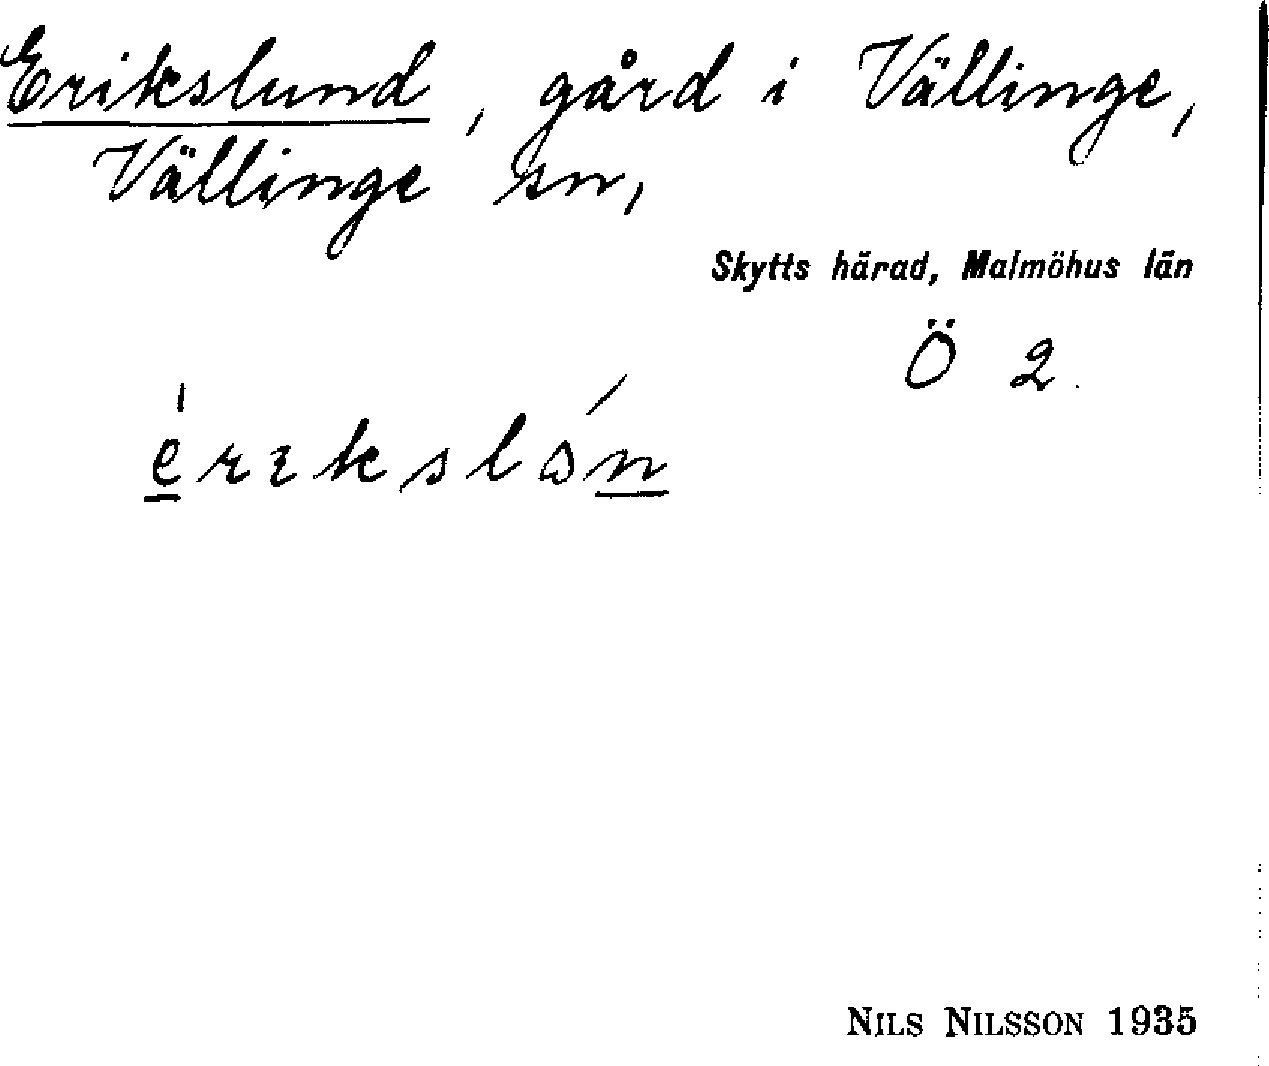 Erikslund, gård i Vällinge,
Vällinge sn,
Skytts härad, Malmöhus län
Ö 2.
NILS NILSSON 1935